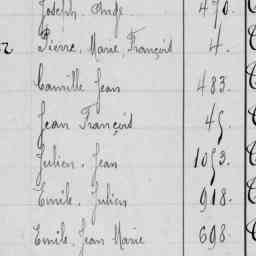 Joseph Ange 470.
Pierre, Marie, François 4.
Camille Jean 483.
Jean François 45.
Julien, Jean 1053.
Emile, Julien 918.
Emile, Jean Marie 698.